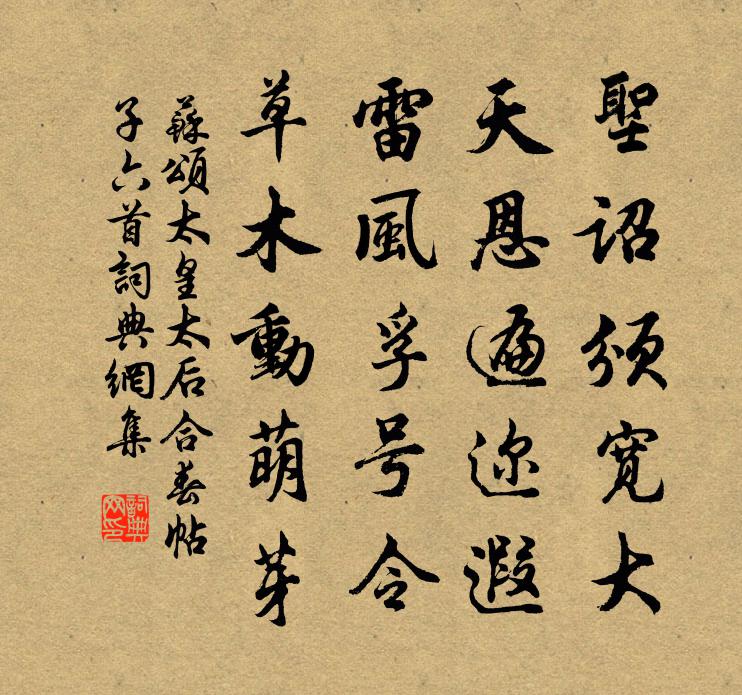 聖詔頒寬大
天恩遍邇遐
雷風孚号令
草木動萌芽
蘇頌太皇太后合春帖
子六首詞典網集
詞典
网印